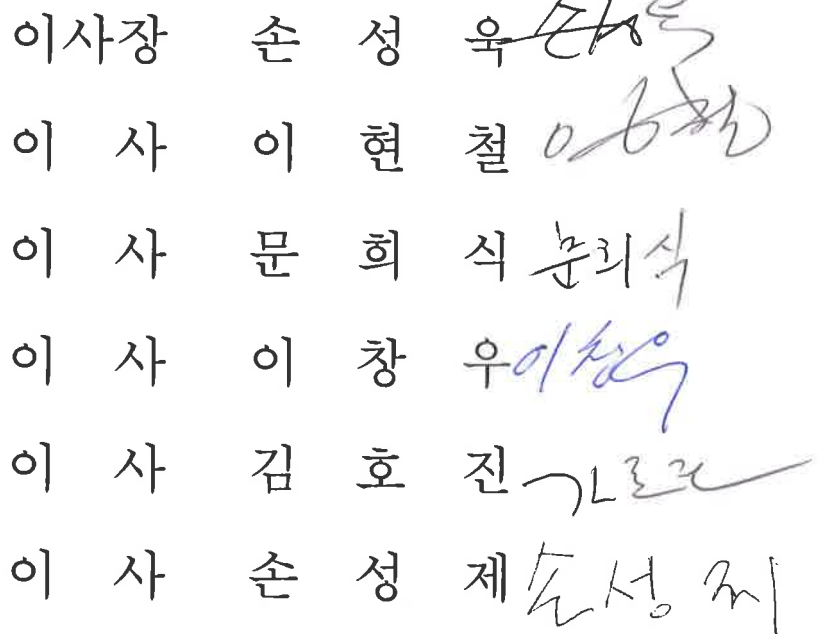 이사장 손 성 욱
이 사 이 현 철
이 사 문 희 식 문희식
이 사 이 창 우 이창우
이 사 김 호 진
이 사 손 성 제 손성제